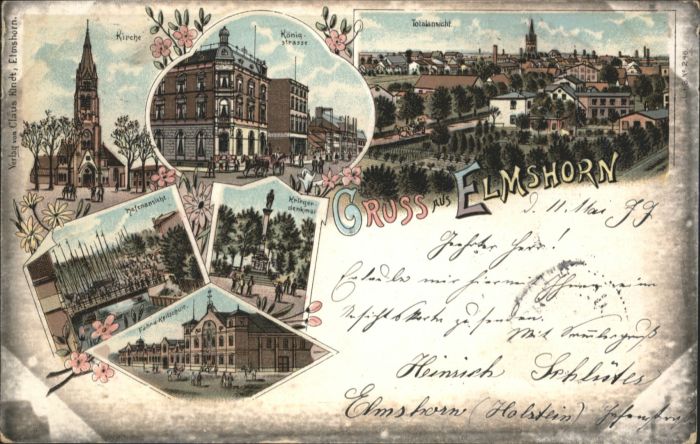 Verlag von Claus Knett, Elmshorn.
Kirche
König-
strasse.
Totalansicht
Hafenansicht
Krieger-
denkmal
Fahr- u. Reitschule.
GRUSS AUS ELMSHORN
d. 11. Mai 99
Geehrter Herr!
Erlaube mir hiermit Ihnen eine
Ansichtskarte zu senden.
Mit
Heinrich Schlüter
Elmshorn (Holstein)